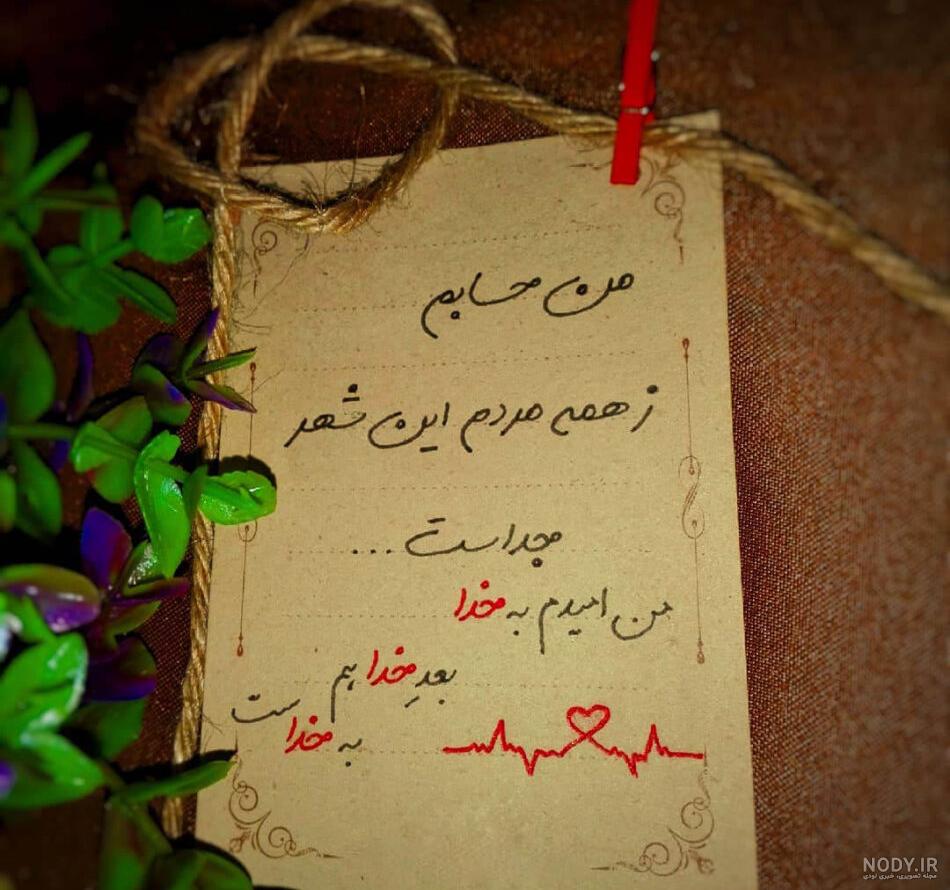 من حسابم
ز همه مردم این شهر
جداست...
من امیدم به خدا
بعدِ خدا هم
به خداست
NODY.IR
مجله تصویری، خبری نودی